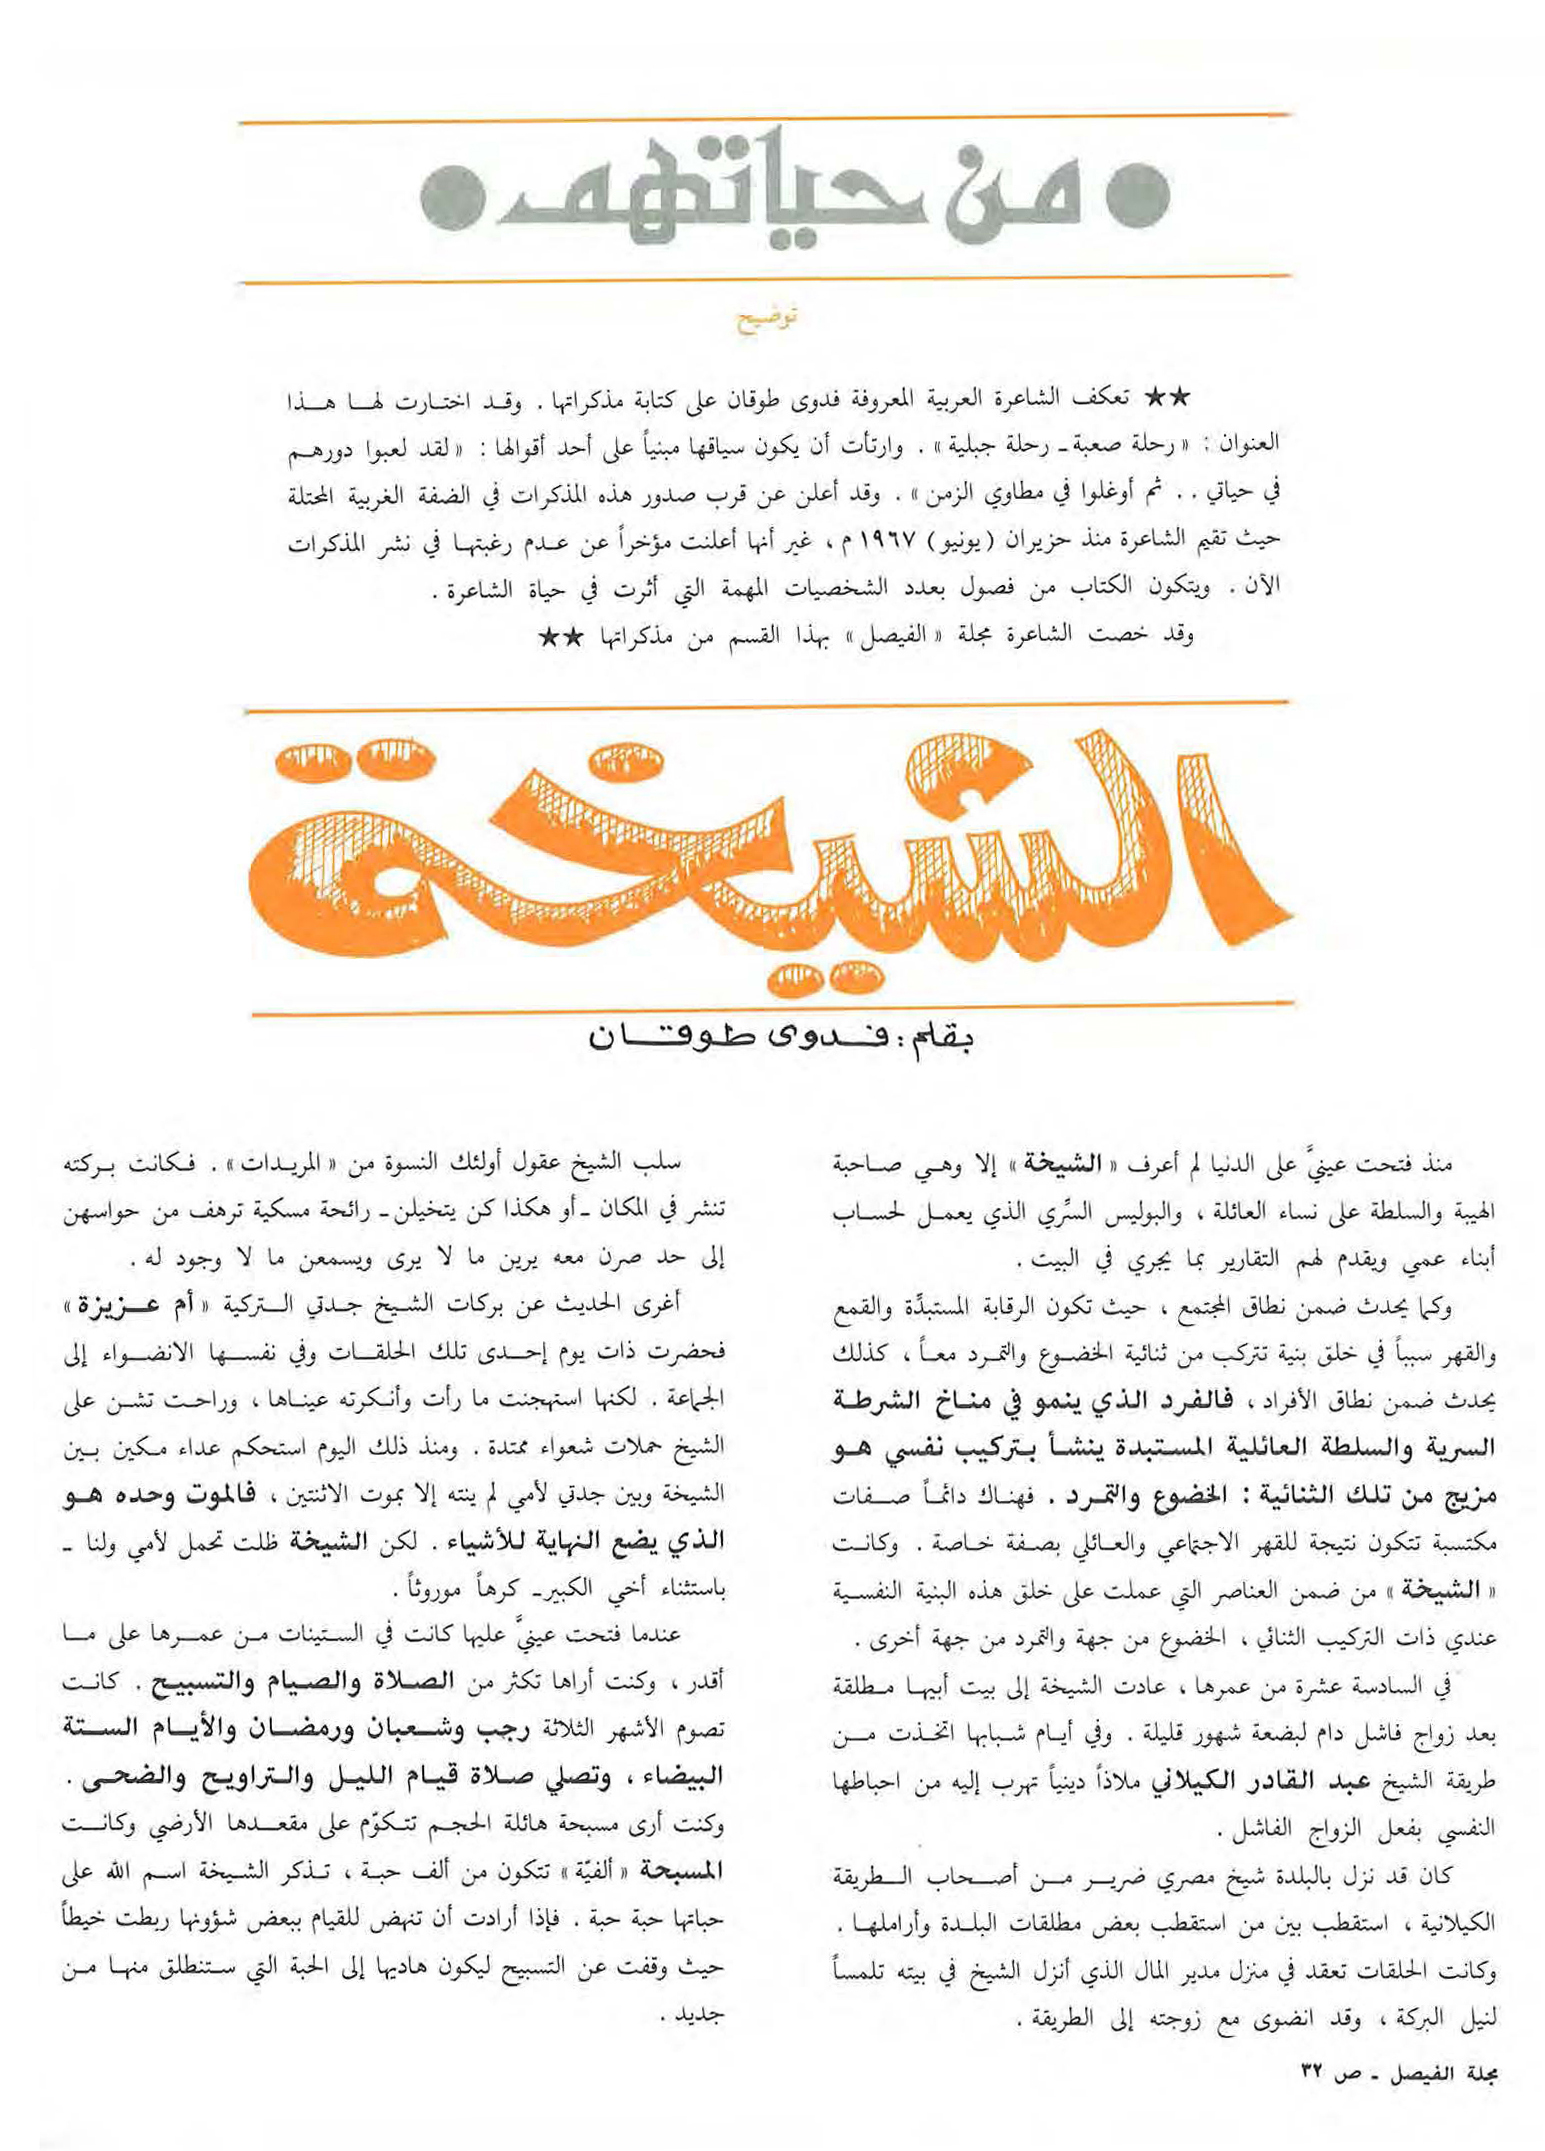 ● من حياتهم ●
توضيح
★★ تعكف الشاعرة العربية المعروفة فدوى طوقان على كتابة مذكراتها . وقد اختارت لها هذا
العنوان : « رحلة صعبة ـ رحلة جبلية » . وارتأت أن يكون سياقها مبنياً على أحد أقوالها : « لقد لعبوا دورهم
في حياتي . . ثم أوغلوا في مطاوي الزمن » . وقد أعلن عن قرب صدور هذه المذكرات في الضفة الغربية المحتلة
حيث تقيم الشاعرة منذ حزيران ( يونيو ) ١٩٦٧ م ، غير أنها أعلنت مؤخراً عن عدم رغبتها في نشر المذكرات
الآن . ويتكون الكتاب من فصول بعدد الشخصيات المهمة التي أثرت في حياة الشاعرة .
وقد خصت الشاعرة مجلة « الفيصل » بهذا القسم من مذكراتها ★★
الشيخة
بقلم : فدوى طوقان
منذ فتحت عينيَّ على الدنيا لم أعرف « الشيخة » إلا وهي صاحبة
الهيبة والسلطة على نساء العائلة ، والبوليس السِّري الذي يعمل لحساب
أبناء عمي ويقدم لهم التقارير بما يجري في البيت .
وكما يحدث ضمن نطاق المجتمع ، حيث تكون الرقابة المستبدَّة والقمع
والقهر سبباً في خلق بنية تتركب من ثنائية الخضوع والتمرد معاً ، كذلك
يحدث ضمن نطاق الأفراد ، فالفرد الذي ينمو في مناخ الشرطة
السرية والسلطة العائلية المستبدة ينشأ بتركيب نفسي هو
مزيج من تلك الثنائية : الخضوع والتمرد . فهناك دائماً صفات
مكتسبة تتكون نتيجة للقهر الاجتماعي والعائلي بصفة خاصة . وكانت
« الشيخة » من ضمن العناصر التي عملت على خلق هذه البنية النفسية
عندي ذات التركيب الثنائي ، الخضوع من جهة والتمرد من جهة أخرى .
في السادسة عشرة من عمرها ، عادت الشيخة إلى بيت أبيها مطلقة
بعد زواج فاشل دام لبضعة شهور قليلة . وفي أيام شبابها اتخذت من
طريقة الشيخ عبد القادر الكيلاني ملاذاً دينياً تهرب إليه من احباطها
النفسي بفعل الزواج الفاشل .
كان قد نزل بالبلدة شيخ مصري ضرير من أصحاب الطريقة
الكيلانية ، استقطب بين من استقطب بعض مطلقات البلدة وأراملها .
وكانت الحلقات تعقد في منزل مدير المال الذي أنزل الشيخ في بيته تلمساً
لنيل البركة ، وقد انضوى مع زوجته إلى الطريقة .
سلب الشيخ عقول أولئك النسوة من « المريدات » . فكانت بركته
تنشر في المكان ـ أو هكذا كن يتخيلن ـ رائحة مسكية ترهف من حواسهن
إلى حد صرن معه يرين ما لا يرى ويسمعن ما لا وجود له .
أغرى الحديث عن بركات الشيخ جدتي التركية « أم عزيزة »
فحضرت ذات يوم إحدى تلك الحلقات وفي نفسها الانضواء إلى
الجماعة . لكنها استهجنت ما رأت وأنكرته عيناها ، وراحت تشن على
الشيخ حملات شعواء ممتدة . ومنذ ذلك اليوم استحكم عداء مكين بين
الشيخة وبين جدتي لأمي لم ينته إلا بموت الاثنتين ، فالموت وحده هو
الذي يضع النهاية للأشياء . لكن الشيخة ظلت تحمل لأمي ولنا ـ
باستثناء أخي الكبير ـ كرهاً موروثاً .
عندما فتحت عينيَّ عليها كانت في الستينات من عمرها على ما
أقدر ، وكنت أراها تكثر من الصلاة والصيام والتسبيح . كانت
تصوم الأشهر الثلاثة رجب وشعبان ورمضان والأيام الستة
البيضاء ، وتصلي صلاة قيام الليل والتراويح والضحى .
وكنت أرى مسبحة هائلة الحجم تتكوّم على مقعدها الأرضي وكانت
المسبحة « ألفيّة » تتكون من ألف حبة ، تذكر الشيخة اسم الله على
حباتها حبة حبة . فإذا أرادت أن تنهض للقيام ببعض شؤونها ربطت خيطاً
حيث وقفت عن التسبيح ليكون هاديها إلى الحبة التي ستنطلق منها من
جديد .
مجلة الفيصل ـ ص ٣٢